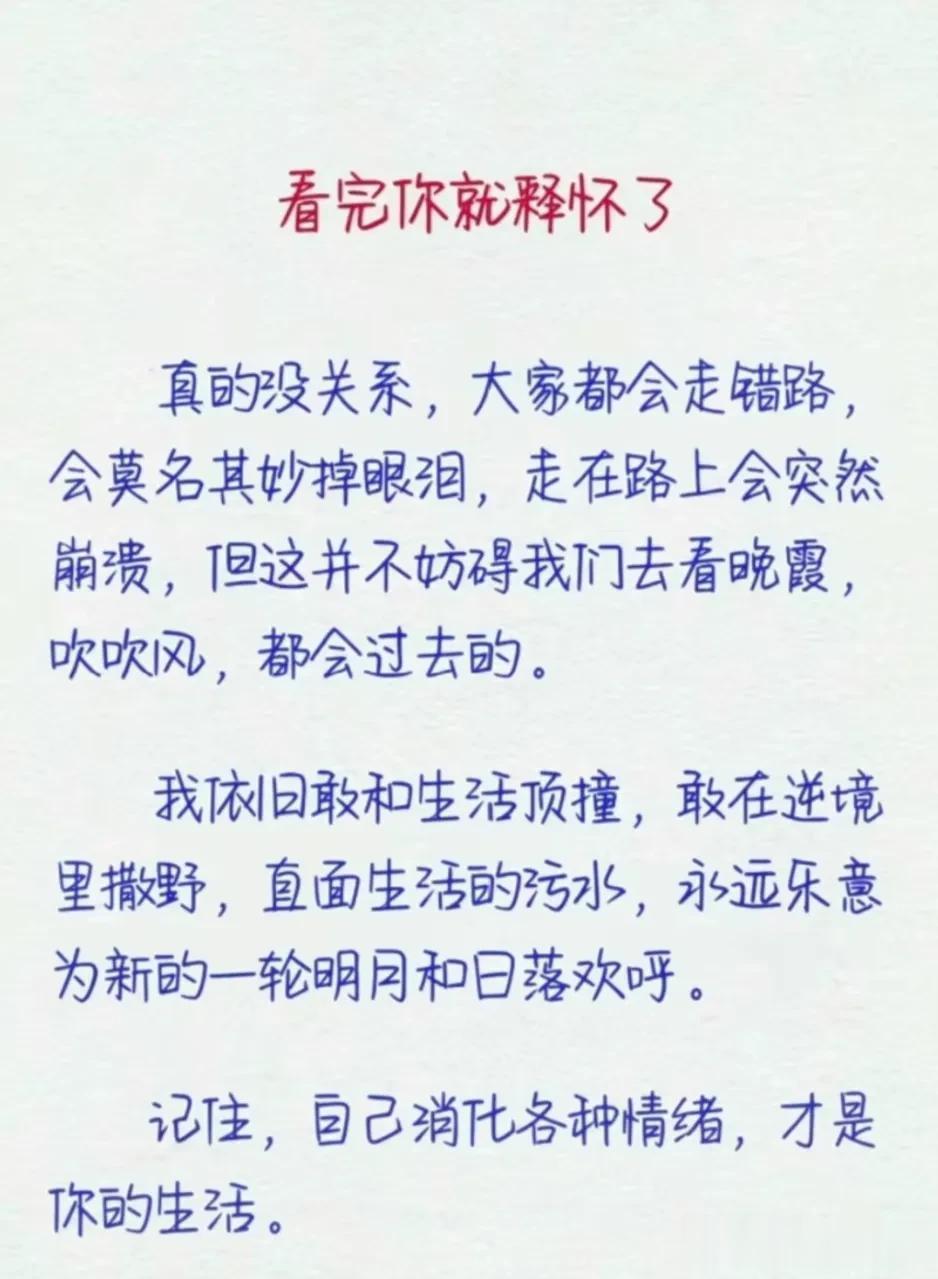 看完你就释怀了
真的没关系，大家都会走错路，
会莫名其妙掉眼泪，走在路上会突然
崩溃，但这并不妨碍我们去看晚霞，
吹吹风，都会过去的。
我依旧敢和生活顶撞，敢在逆境
里撒野，直面生活的污水，永远乐意
为新的一轮明月和日落欢呼。
记住，自己消化各种情绪，才是
你的生活。